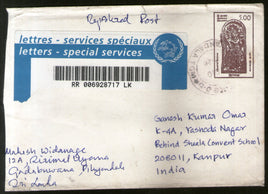 Registered Post
lettres - services spéciaux
letters - special services
RR 006928717 LK
1.00
Mahesh Widanage
12A, Uyana
Sri Lanka
Ganesh Kumar Omar
K-4A, Yashoda Nagar
Behind Shuela Convent School
208011, Kanpur
India